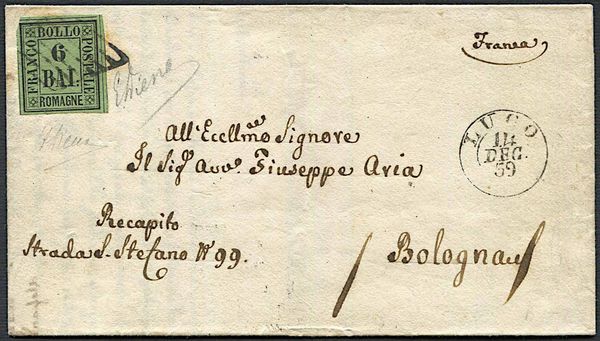 FRANCO BOLLO POSTALE
6
BAI.
ROMAGNE
Franca
EDiena
LUGO
14
DEC.
59
All'Ecellmo Signore
Il Sigr Avvo Giuseppe Aria
Recapito
Strada S. Stefano No 99.
Bologna